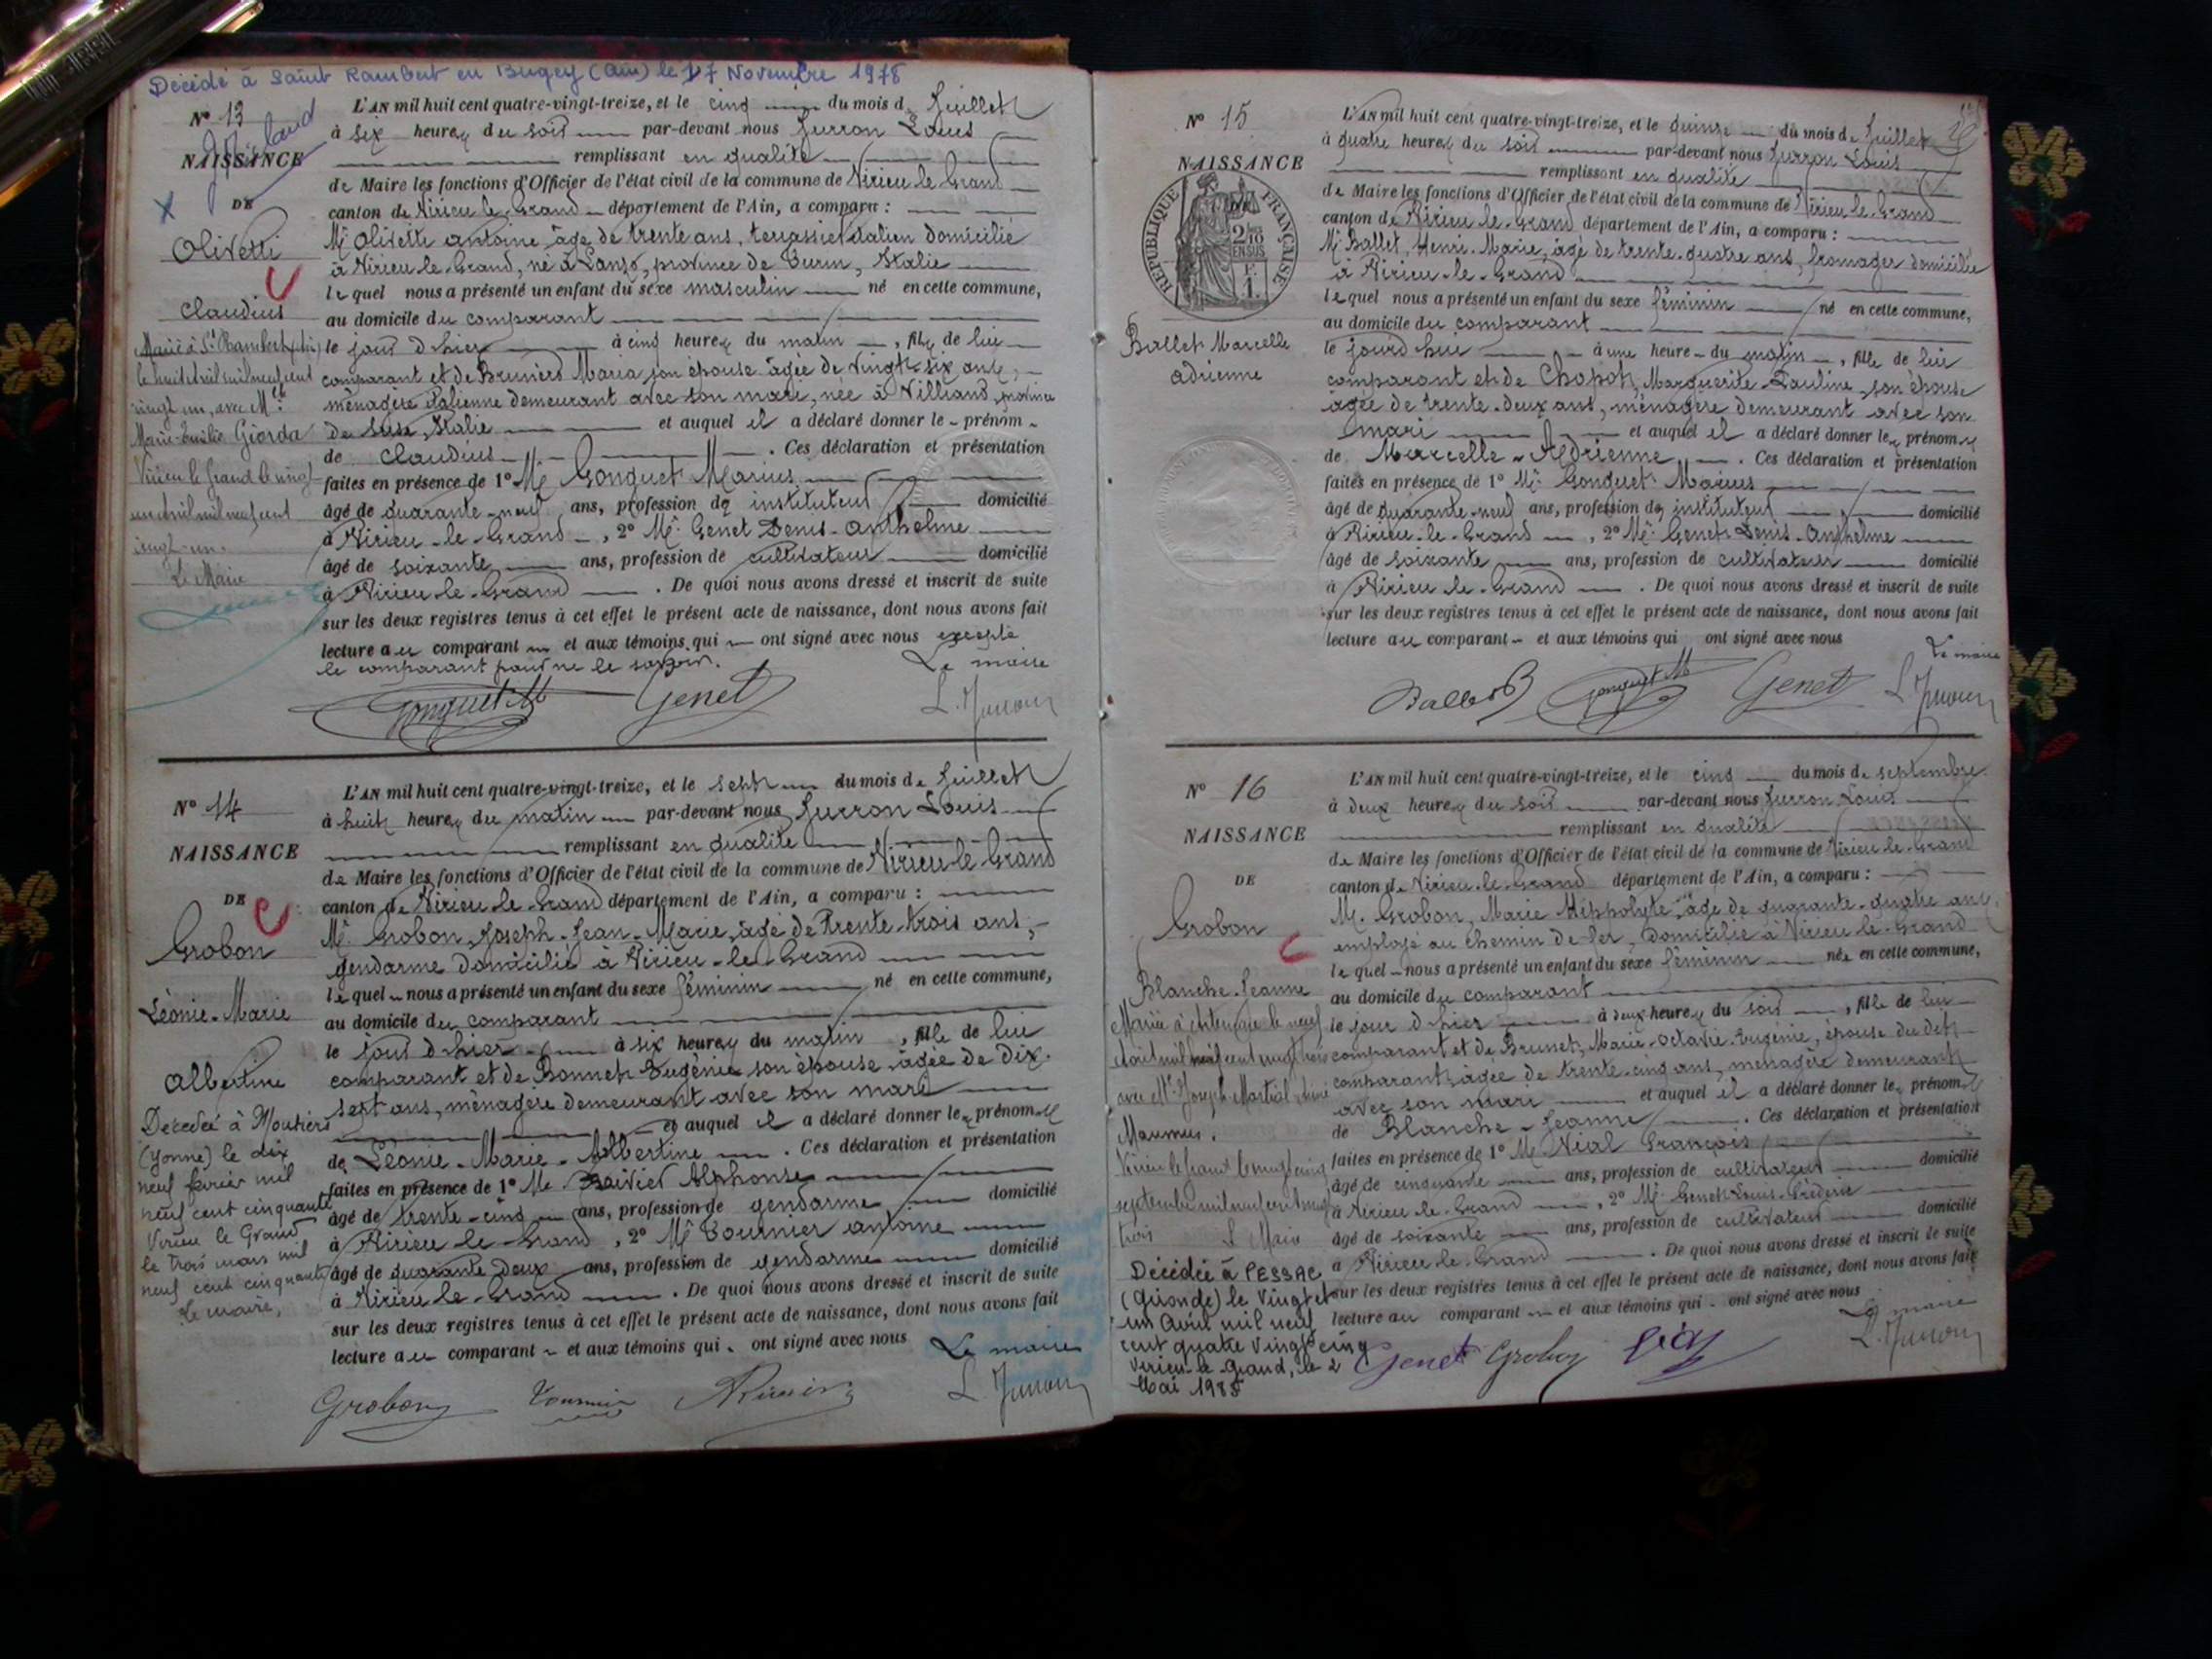 Décédé à Saint Rambert en Bugey (Ain) le 17 Novembre 1978
N° 13
NAISSANCE
DE
Olivetti
Claudius
Marié à St Rambert (Ain)
le huit avril mil neuf cent
vingt un, avec Mlle
Marie-Emélie Giorda
Virieu le Grand le vingt
un avril mil neuf cent
vingt-un.
Le Maire
L'AN mil huit cent quatre-vingt-treize, et le cinq du mois de Juillet
à six heures du soir par-devant nous Juvron Louis
remplissant en qualité
de Maire les fonctions d'Officier de l'état civil de la commune de Virieu le Grand
canton de Virieu le Grand département de l'Ain, a comparu :
Mr Olivetti antoine âgé de trente ans, terrassier italien domicilié
à Virieu-le-Grand, né à Lanzo, province de Turin, Italie
lequel nous a présenté un enfant du sexe masculin né en cette commune,
au domicile du comparant
le jour d'hier à cinq heures du matin, fils de lui
comparant et de Bruniéra Maria son épouse âgée de vingt-six ans,
ménagère italienne demeurant avec son mari, née à Villiand, province
de Suse, Italie et auquel il a déclaré donner le prénom
de Claudius. Ces déclaration et présentation
faites en présence de 1° Mr Gonguet Marius
âgé de quarante-neuf ans, profession de instituteur domicilié
à Virieu-le-Grand, 2° Mr Genet Denis-Anthelme
âgé de soixante ans, profession de cultivateur domicilié
à Virieu-le-Grand. De quoi nous avons dressé et inscrit de suite
sur les deux registres tenus à cet effet le présent acte de naissance, dont nous avons fait
lecture au comparant et aux témoins qui ont signé avec nous excepté
le comparant pour ne le savoir. Le maire
Gonguet M Genet L. Juvron
N° 14
NAISSANCE
DE
Grobon
Léonie-Marie
Albertine
Décédée à Moutiers
(Yonne) le dix
neuf février mil
neuf cent cinquante
Virieu le Grand
le trois mars mil
neuf cent cinquante
Le maire,
L'AN mil huit cent quatre-vingt-treize, et le sept du mois de Juillet
à huit heures du matin par-devant nous Juvron Louis
remplissant en qualité
de Maire les fonctions d'Officier de l'état civil de la commune de Virieu-le-Grand
canton de Virieu le Grand département de l'Ain, a comparu :
Mr Grobon, Joseph-Jean-Marie, âgé de trente-trois ans,
gendarme domicilié à Virieu-le-Grand
lequel nous a présenté un enfant du sexe féminin né en cette commune,
au domicile du comparant
le jour d'hier à six heures du matin, fille de lui
comparant et de Bonnet Eugénie son épouse âgée de dix-
sept ans, ménagère demeurant avec son mari
et auquel il a déclaré donner les prénoms
de Léonie-Marie-Albertine. Ces déclaration et présentation
faites en présence de 1° Mr Rivier Alphonse
âgé de trente-cinq ans, profession de gendarme domicilié
à Virieu le Grand, 2° Mr Tournier antoine
âgé de quarante deux ans, profession de gendarme domicilié
à Virieu le Grand. De quoi nous avons dressé et inscrit de suite
sur les deux registres tenus à cet effet le présent acte de naissance, dont nous avons fait
lecture au comparant et aux témoins qui ont signé avec nous Le maire
Grobon Tournier Rivier L. Juvron
N° 15
NAISSANCE
RÉPUBLIQUE FRANÇAISE
Ballet Marcelle
Adrienne
L'AN mil huit cent quatre-vingt-treize, et le quinze du mois de Juillet
à quatre heures du soir par-devant nous Juvron Louis
remplissant en qualité
de Maire les fonctions d'Officier de l'état civil de la commune de Virieu-le-Grand
canton de Virieu-le-Grand département de l'Ain, a comparu :
Mr Ballet, Henri-Marie, âgé de trente-quatre ans, fromager domicilié
à Virieu-le-Grand
lequel nous a présenté un enfant du sexe féminin né en cette commune,
au domicile du comparant
le jourd'hui à une heure du matin, fille de lui
comparant et de Chapot, Marguerite-Pauline, son épouse
âgée de trente-deux ans, ménagère demeurant avec son
mari et auquel il a déclaré donner les prénoms
de Marcelle-Adrienne. Ces déclaration et présentation
faites en présence de 1° Mr Gonguet Marius
âgé de quarante-neuf ans, profession de instituteur domicilié
à Virieu-le-Grand, 2° Mr Genet Denis-Anthelme
âgé de soixante ans, profession de cultivateur domicilié
à Virieu-le-Grand. De quoi nous avons dressé et inscrit de suite
sur les deux registres tenus à cet effet le présent acte de naissance, dont nous avons fait
lecture au comparant et aux témoins qui ont signé avec nous
Le maire
Ballet Gonguet M Genet L. Juvron
N° 16
NAISSANCE
DE
Grobon
Blanche-Jeanne
Mariée à le neuf
août mil neuf cent vingt trois
avec Mr Joseph Martial
Maumus.
Virieu le grand le vingt cinq
septembre mil neuf cent vingt
trois Le Maire
Décédée à PESSAC
(Gironde) le vingt et
un Avril mil neuf
cent quatre vingt cinq
Virieu-le-Grand, le 2
Mai 1985
L'AN mil huit cent quatre-vingt-treize, et le cinq du mois de septembre
à deux heures du soir par-devant nous Juvron Louis
remplissant en qualité
de Maire les fonctions d'Officier de l'état civil de la commune de Virieu-le-Grand
canton de Virieu-le-Grand département de l'Ain, a comparu :
M. Grobon, Marie Hippolyte, âgé de quarante-quatre ans,
employé au chemin de fer, domicilié à Virieu-le-Grand
lequel nous a présenté un enfant du sexe féminin née en cette commune,
au domicile du comparant
le jour d'hier à deux heures du soir, fille de lui
comparant et de Brunet, Marie-Octavie-Eugénie, épouse du dit
comparant, âgée de trente-cinq ans, ménagère demeurant
avec son mari et auquel il a déclaré donner les prénoms
de Blanche-Jeanne. Ces déclaration et présentation
faites en présence de 1° Mr Vial François
âgé de cinquante ans, profession de cultivateur domicilié
à Virieu-le-Grand, 2° Mr Genet Louis-Frédéric
âgé de soixante ans, profession de cultivateur domicilié
à Virieu-le-Grand. De quoi nous avons dressé et inscrit de suite
sur les deux registres tenus à cet effet le présent acte de naissance, dont nous avons fait
lecture au comparant et aux témoins qui ont signé avec nous
Le maire
Genet Grobon Vial L. Juvron